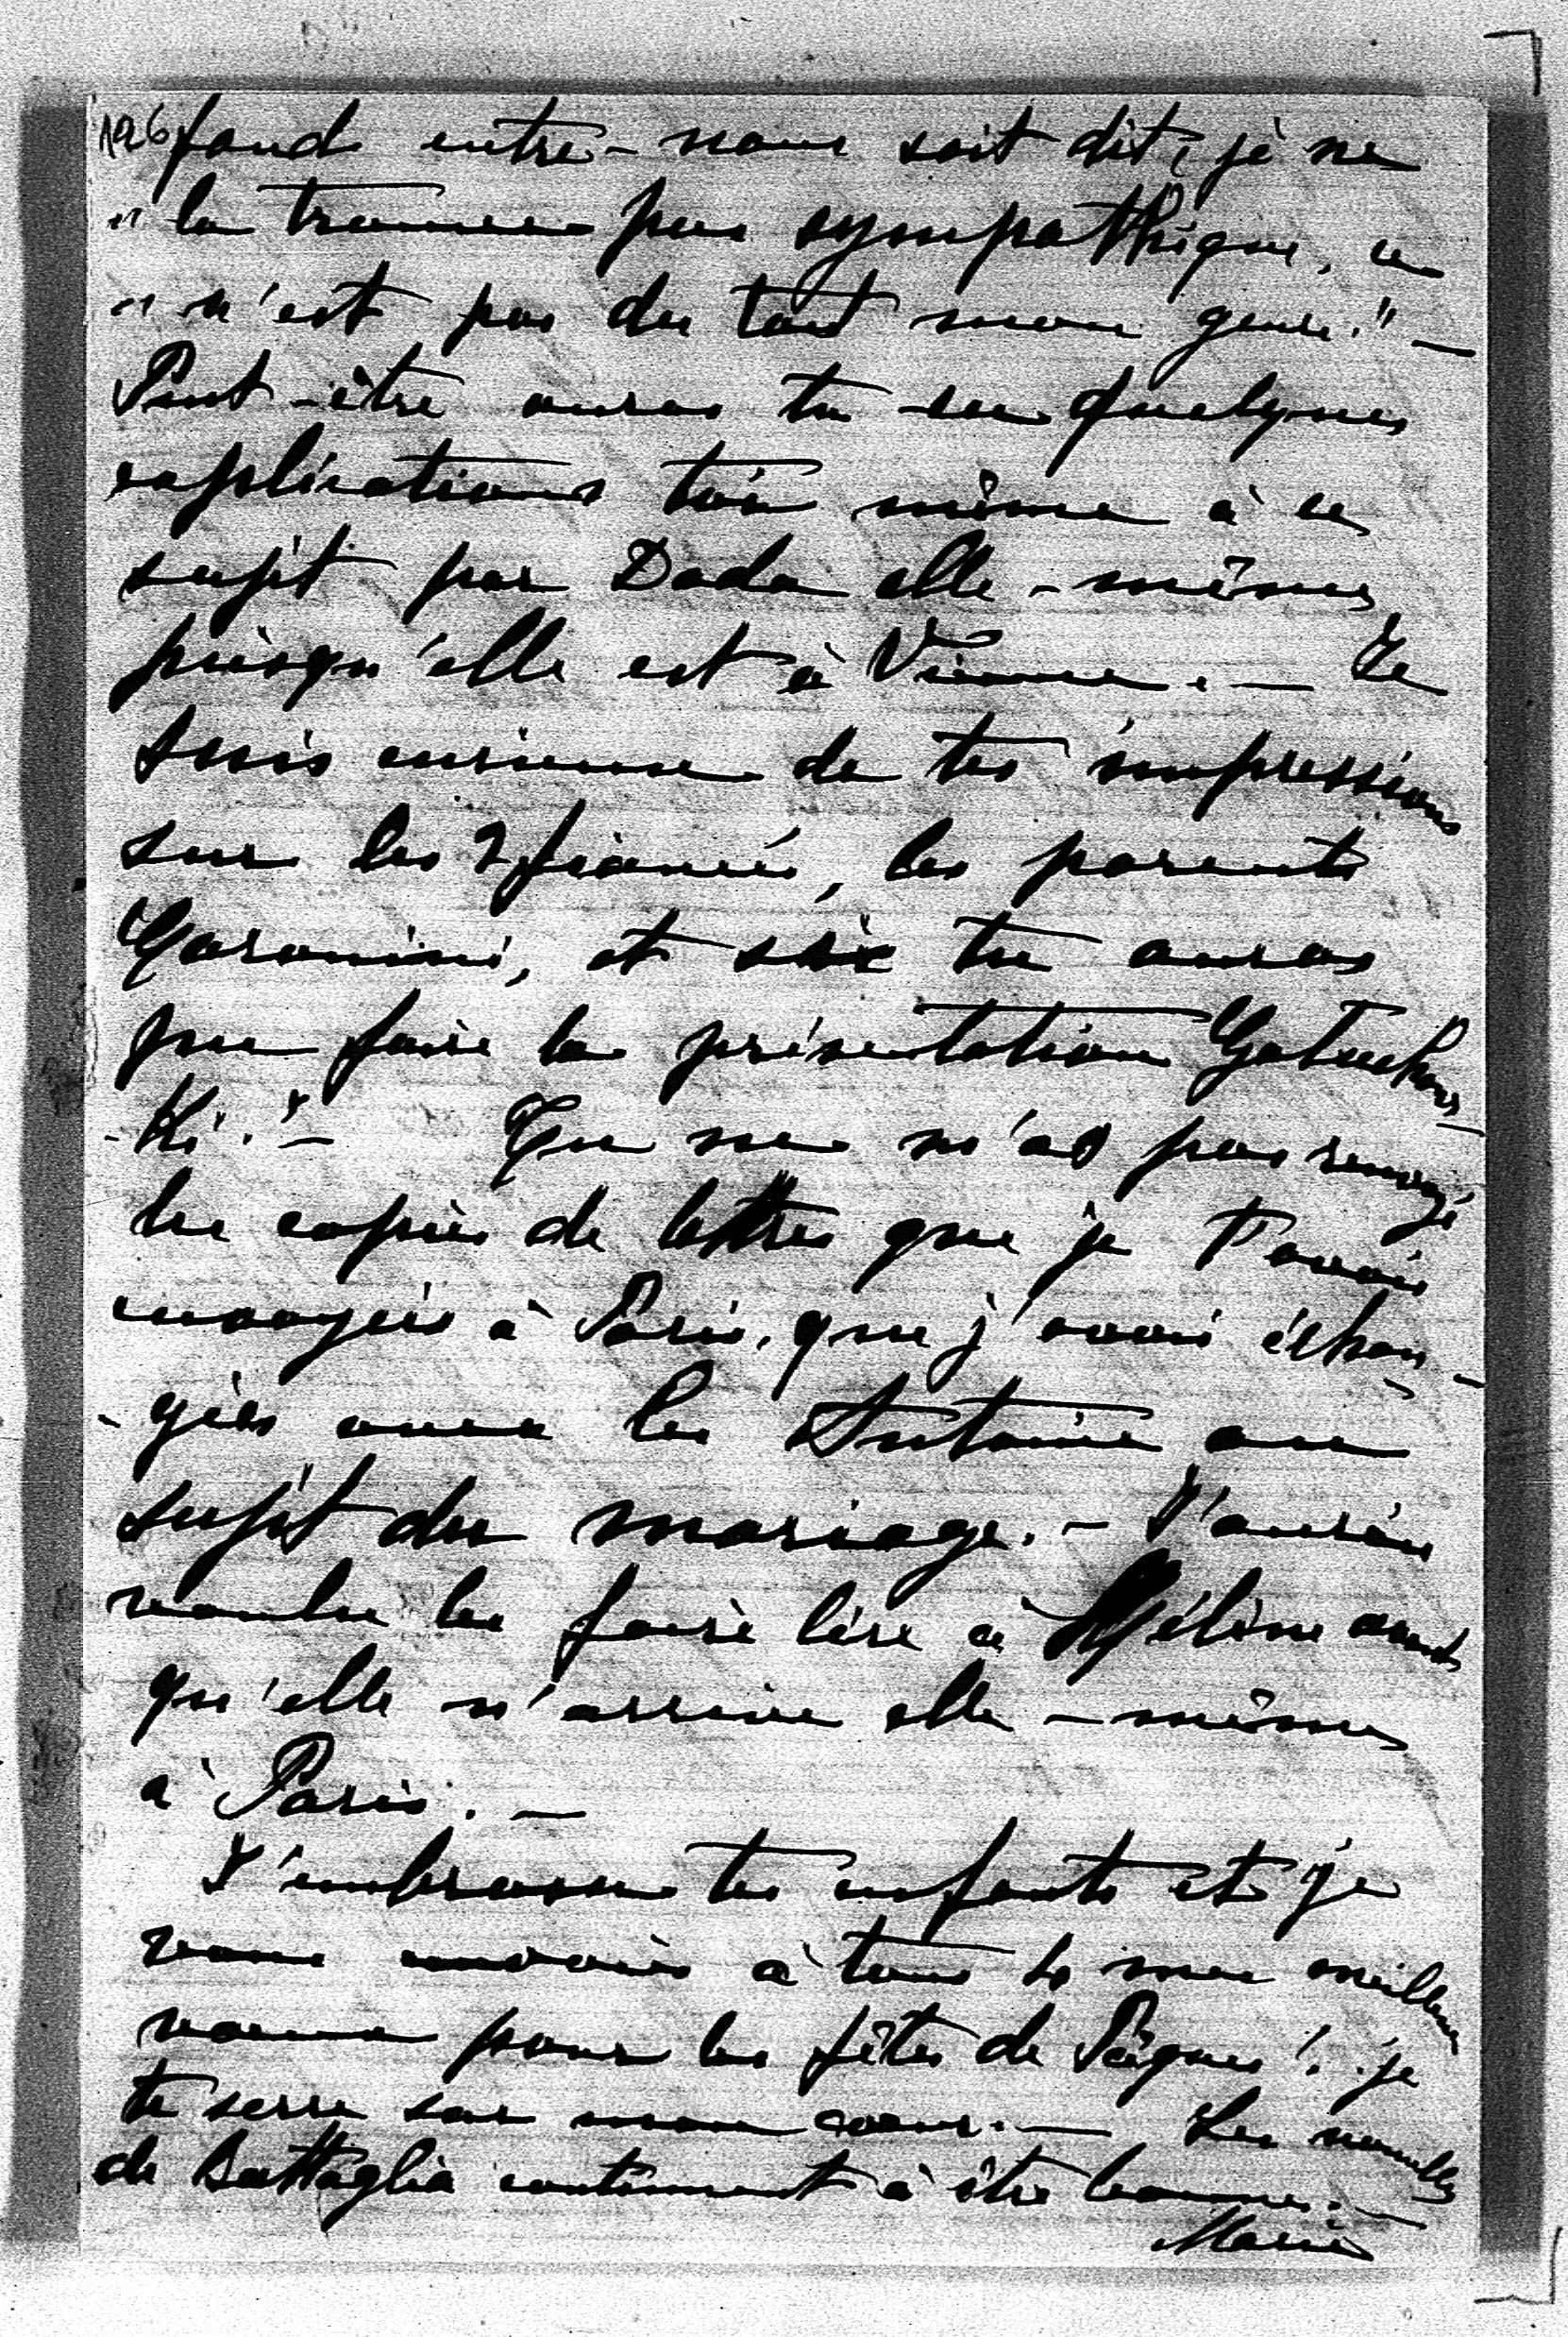 196 fond entre-nous soit dit, je ne
" la trouve pas sympathique, ce
" n'est pas du tout mon genre." —
Peut-être auras tu eu quelques
explications toi même à ce
sujet par Dada elle-même,
puisqu'elle est à Vienne. — Je
suis curieuse de tes impressions
sur les 2 fiancés, les parents
et si tu auras
pu faire la présentation
-ki. — Tu ne m'as pas renvoyé
les copies de lettres que je t'avais
envoyées à Paris, que j'avais échan-
-gées avec les Antoine au
sujet du mariage. — J'aurais
voulu les faire lire à Hélène avant
qu'elle n'arrive elle-même
à Paris. —
J'embrasse tes enfants et je
vous envoie à tous mes meilleurs
voeux pour les fêtes de Pâques! je
te serre sur mon coeur. — Les nouvelles
de Battaglia continuent à être bonnes. —
Marie